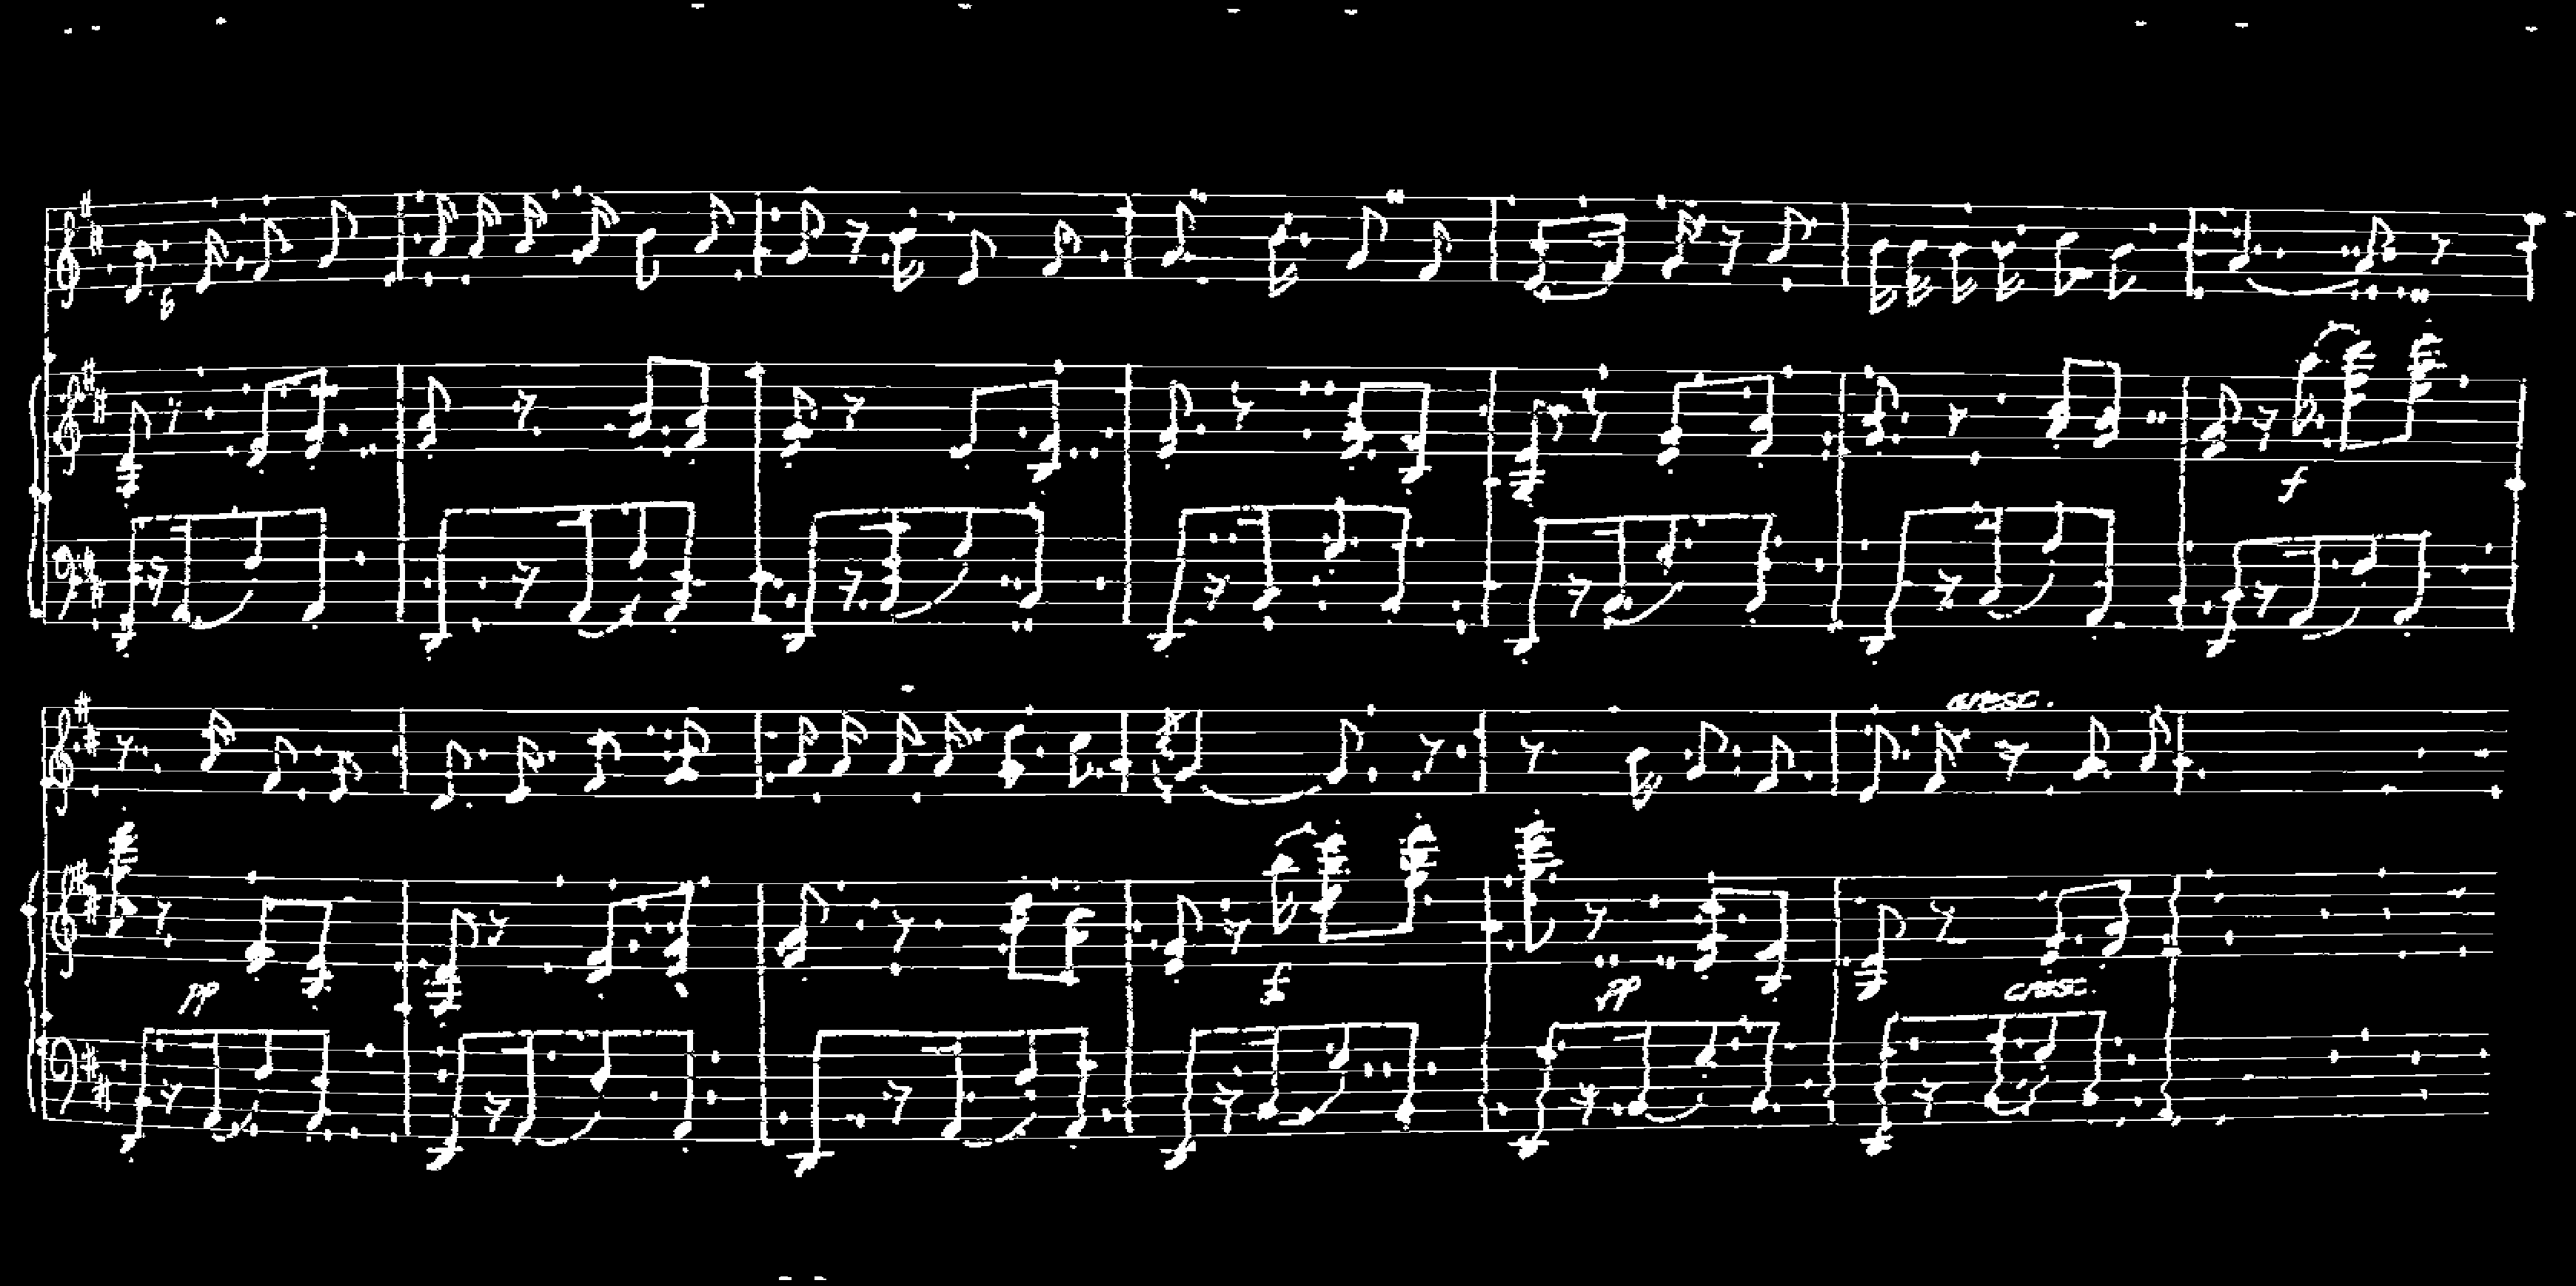 f
cresc.
pp
f
pp
cresc.